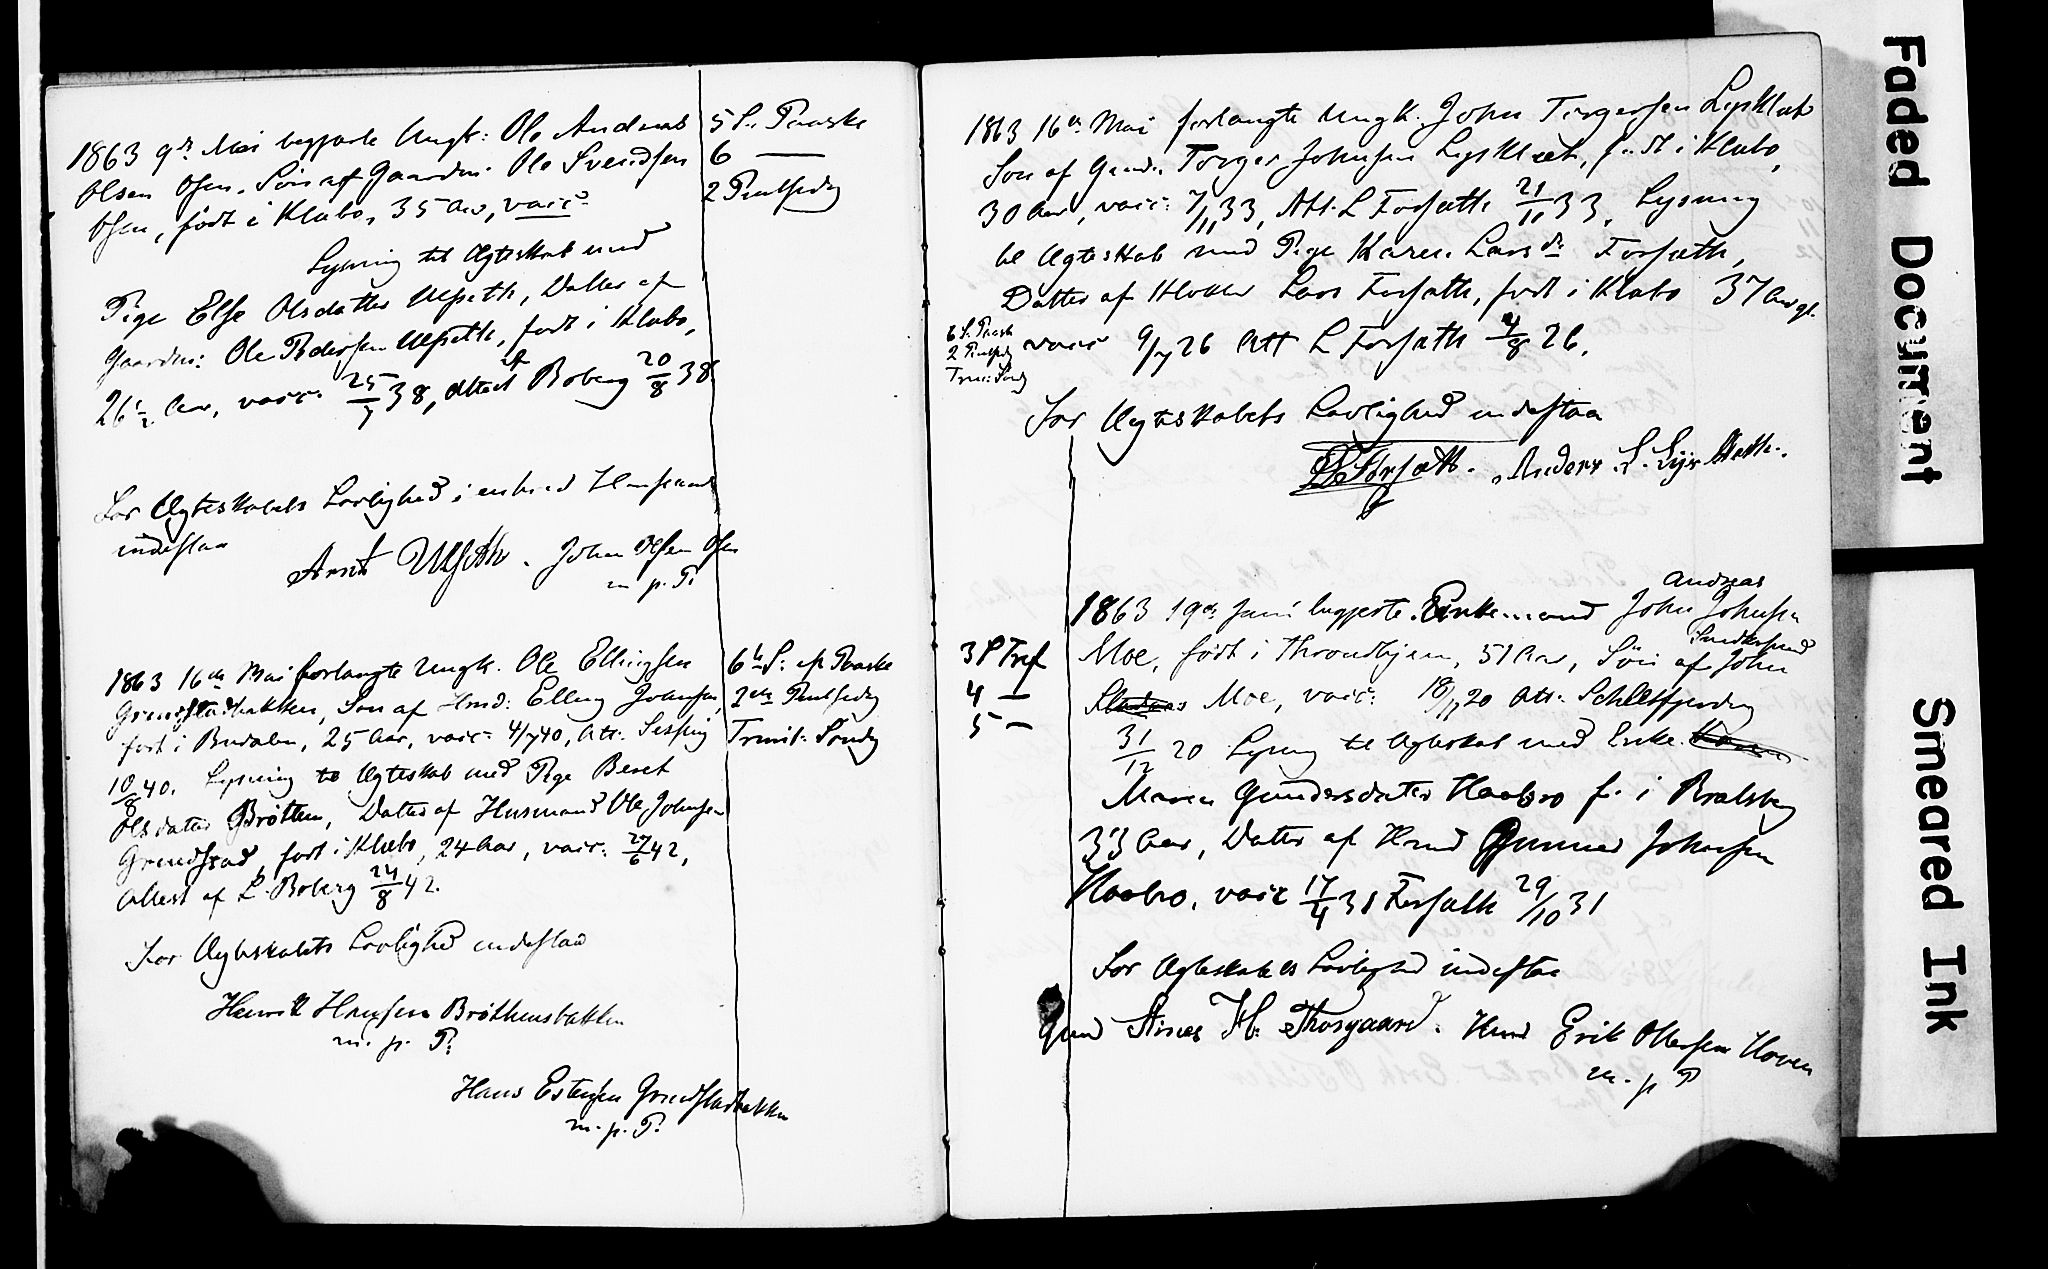 1863 9de Mai begjærte Ungk: Ole Andreas
Olsen Osen, Søn af Gaardm: Ole Svendsen
Osen, født i Klæbo, 35 Aar, vacc:
Lysning til Ægteskab med
Pige Else Olsdatter Ulseth, Datter af
Gaardm: Ole Pedersen Ulseth, født i Klæbo,
26½ Aar, vacc: 25/7 38, Attest af Boberg 20/8 38
5 S. Paaske
6 —
2 Pintsedag
For Ægteskabets Lovlighed i enhver Henseende
indestaa
Arnt Ulseth. Johan Olsen Osen
m. p. P.
1863 16de Mai forlangte Ungk. Ole Ellingsen
Grendstadbakken, Søn af Hmd: Elling Johnsen,
født i Budalen, 25 Aar, vacc: 4/7 40, Att:
10/8 40. Lysning til Ægteskab med Pige Beret
Olsdatter Brøttem, Datter af Husmand Ole Johnsen
Grendstad, født i Klæbo, 24 Aar, vacc: 27/6 42,
Attest af L. Boberg 24/8 42.
6te S: ef Paaske
2den Pintsedag
Trinit: Søndag
For Ægteskabets Lovlighed indestaa
Henrik Hansen Brøthensbakken
m. p. P.
Hans Estensen Grendstadbakken
m. p. P.
1863 16de Mai forlangte Ungk. John Torgersen Lysklæt
Søn af Gmd: Torger Johnsen Lysklæt, født i Klæbo,
30 Aar, vacc: 7/11 33, Att. L Forsæth 21/11 33, Lysning
til Ægteskab med Pige Karen Larsdr Forsæth,
Datter af Klokker Lars Forsæth, født i Klæbo 37 Aar gl.
vacc 9/7 26 Att L Forsæth 4/8 26.
6 S. Paask
2 Pintsedg
Trin: Søndg
For Ægteskabets Lovlighed indestaa
L Forsæth. Anders L. Lysklætt.
1863 19de Juni begjærte Enkemand John Andreas Johnsen
Moe, født i Throndhjem, 51 Aar, Søn af John
Moe, vacc: 18/11 20 Att:
31/12 20 Lysning til Ægteskab med Enke
Maren Gundersdatter Haabro f. i Bratsberg
33 Aar, Datter af Hmd Gunner Johnsen
Haabro, vacc 17/4 31 Forsæth 29/10 31
3 S Tref
4 —
5 —
For Ægteskabets Lovlighed indestaa
Gmd H. Thorgaard. Hmd Erik Ottersen Hoven
m. p. P
Faded Document
Smeared Ink